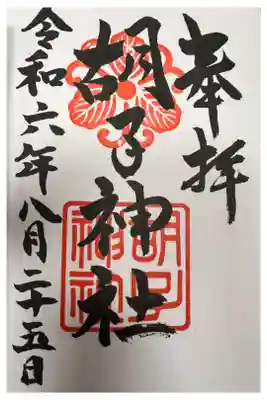 奉拝
胡子神社
令和六年八月二十五日
胡子
神社